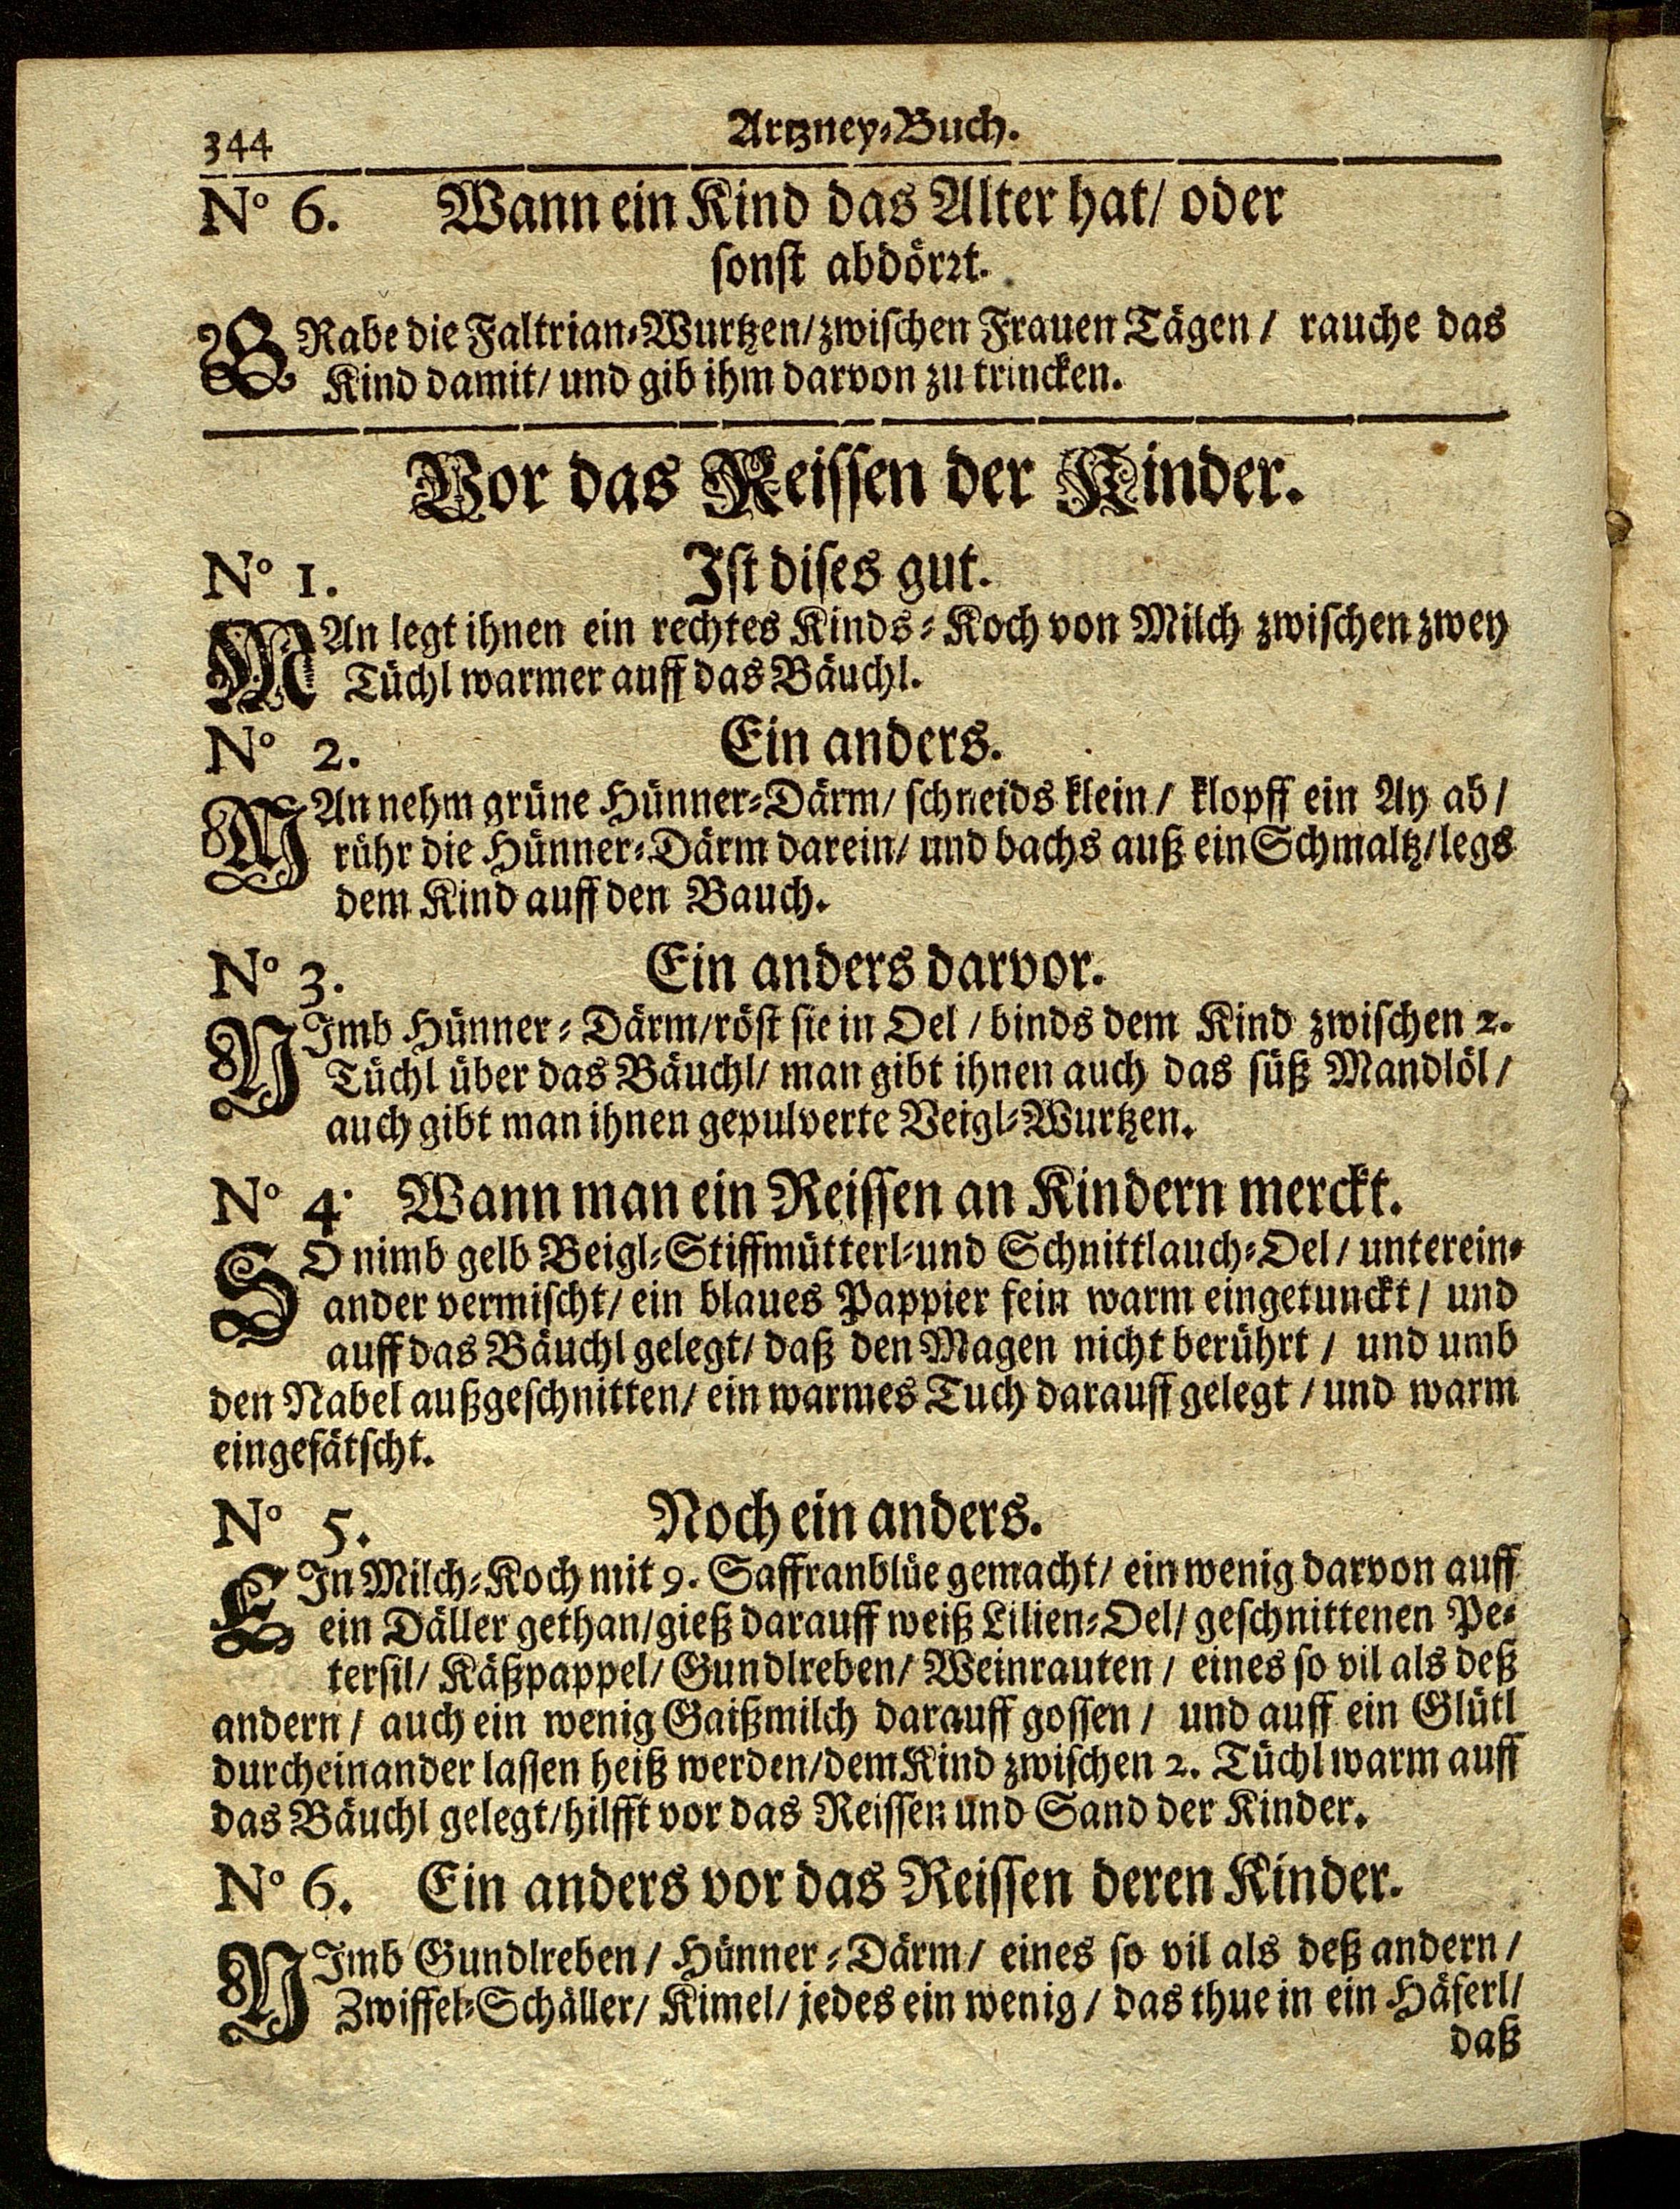 344
Artzney-Buch.
No 6. Wann ein Kind das Alter hat/ oder
sonst abdörrt.
GRabe die Faltrian-Wurtzen/zwischen Frauen Tägen / rauche das
Kind damit/ und gib ihm darvon zu trincken.
Vor das Reissen der Kinder.
No 1. Ist dises gut.
MAn legt ihnen ein rechtes Kinds-Koch von Milch zwischen zwey
Tüchl warmer auff das Bäuchl.
No 2. Ein anders.
MAn nehm grüne Hünner-Därm/ schneids klein / klopff ein Ay ab /
rühr die Hünner-Därm darein/ und bachs auß ein Schmaltz/legs
dem Kind auff den Bauch.
No 3. Ein anders darvor.
NImb Hünner-Därm/röst sie in Oel / binds dem Kind zwischen 2.
Tüchl über das Bäuchl/ man gibt ihnen auch das süß Mandlöl /
auch gibt man ihnen gepulverte Veigl-Wurtzen.
No 4. Wann man ein Reissen an Kindern merckt.
SO nimb gelb Veigl-Stiffmütterl-und Schnittlauch-Oel / unterein-
ander vermischt/ ein blaues Pappier fein warm eingetunckt / und
auff das Bäuchl gelegt/ daß den Magen nicht berührt / und umb
den Nabel außgeschnitten/ ein warmes Tuch darauff gelegt / und warm
eingefätscht.
No 5. Noch ein anders.
EIn Milch-Koch mit 9. Saffranblüe gemacht/ ein wenig darvon auff
ein Däller gethan/gieß darauff weiß Lilien-Oel/ geschnittenen Pe-
tersil/ Käßpappel/ Gundlreben/ Weinrauten / eines so vil als deß
andern / auch ein wenig Gaißmilch darauff gossen / und auff ein Glütl
durcheinander lassen heiß werden/dem Kind zwischen 2. Tüchl warm auff
das Bäuchl gelegt/hilfft vor das Reissen und Sand der Kinder.
No 6. Ein anders vor das Reissen deren Kinder.
NImb Gundlreben / Hünner-Därm / eines so vil als deß andern /
Zwiffel-Schäller/ Kimel/ jedes ein wenig / das thue in ein Häferl/
daß